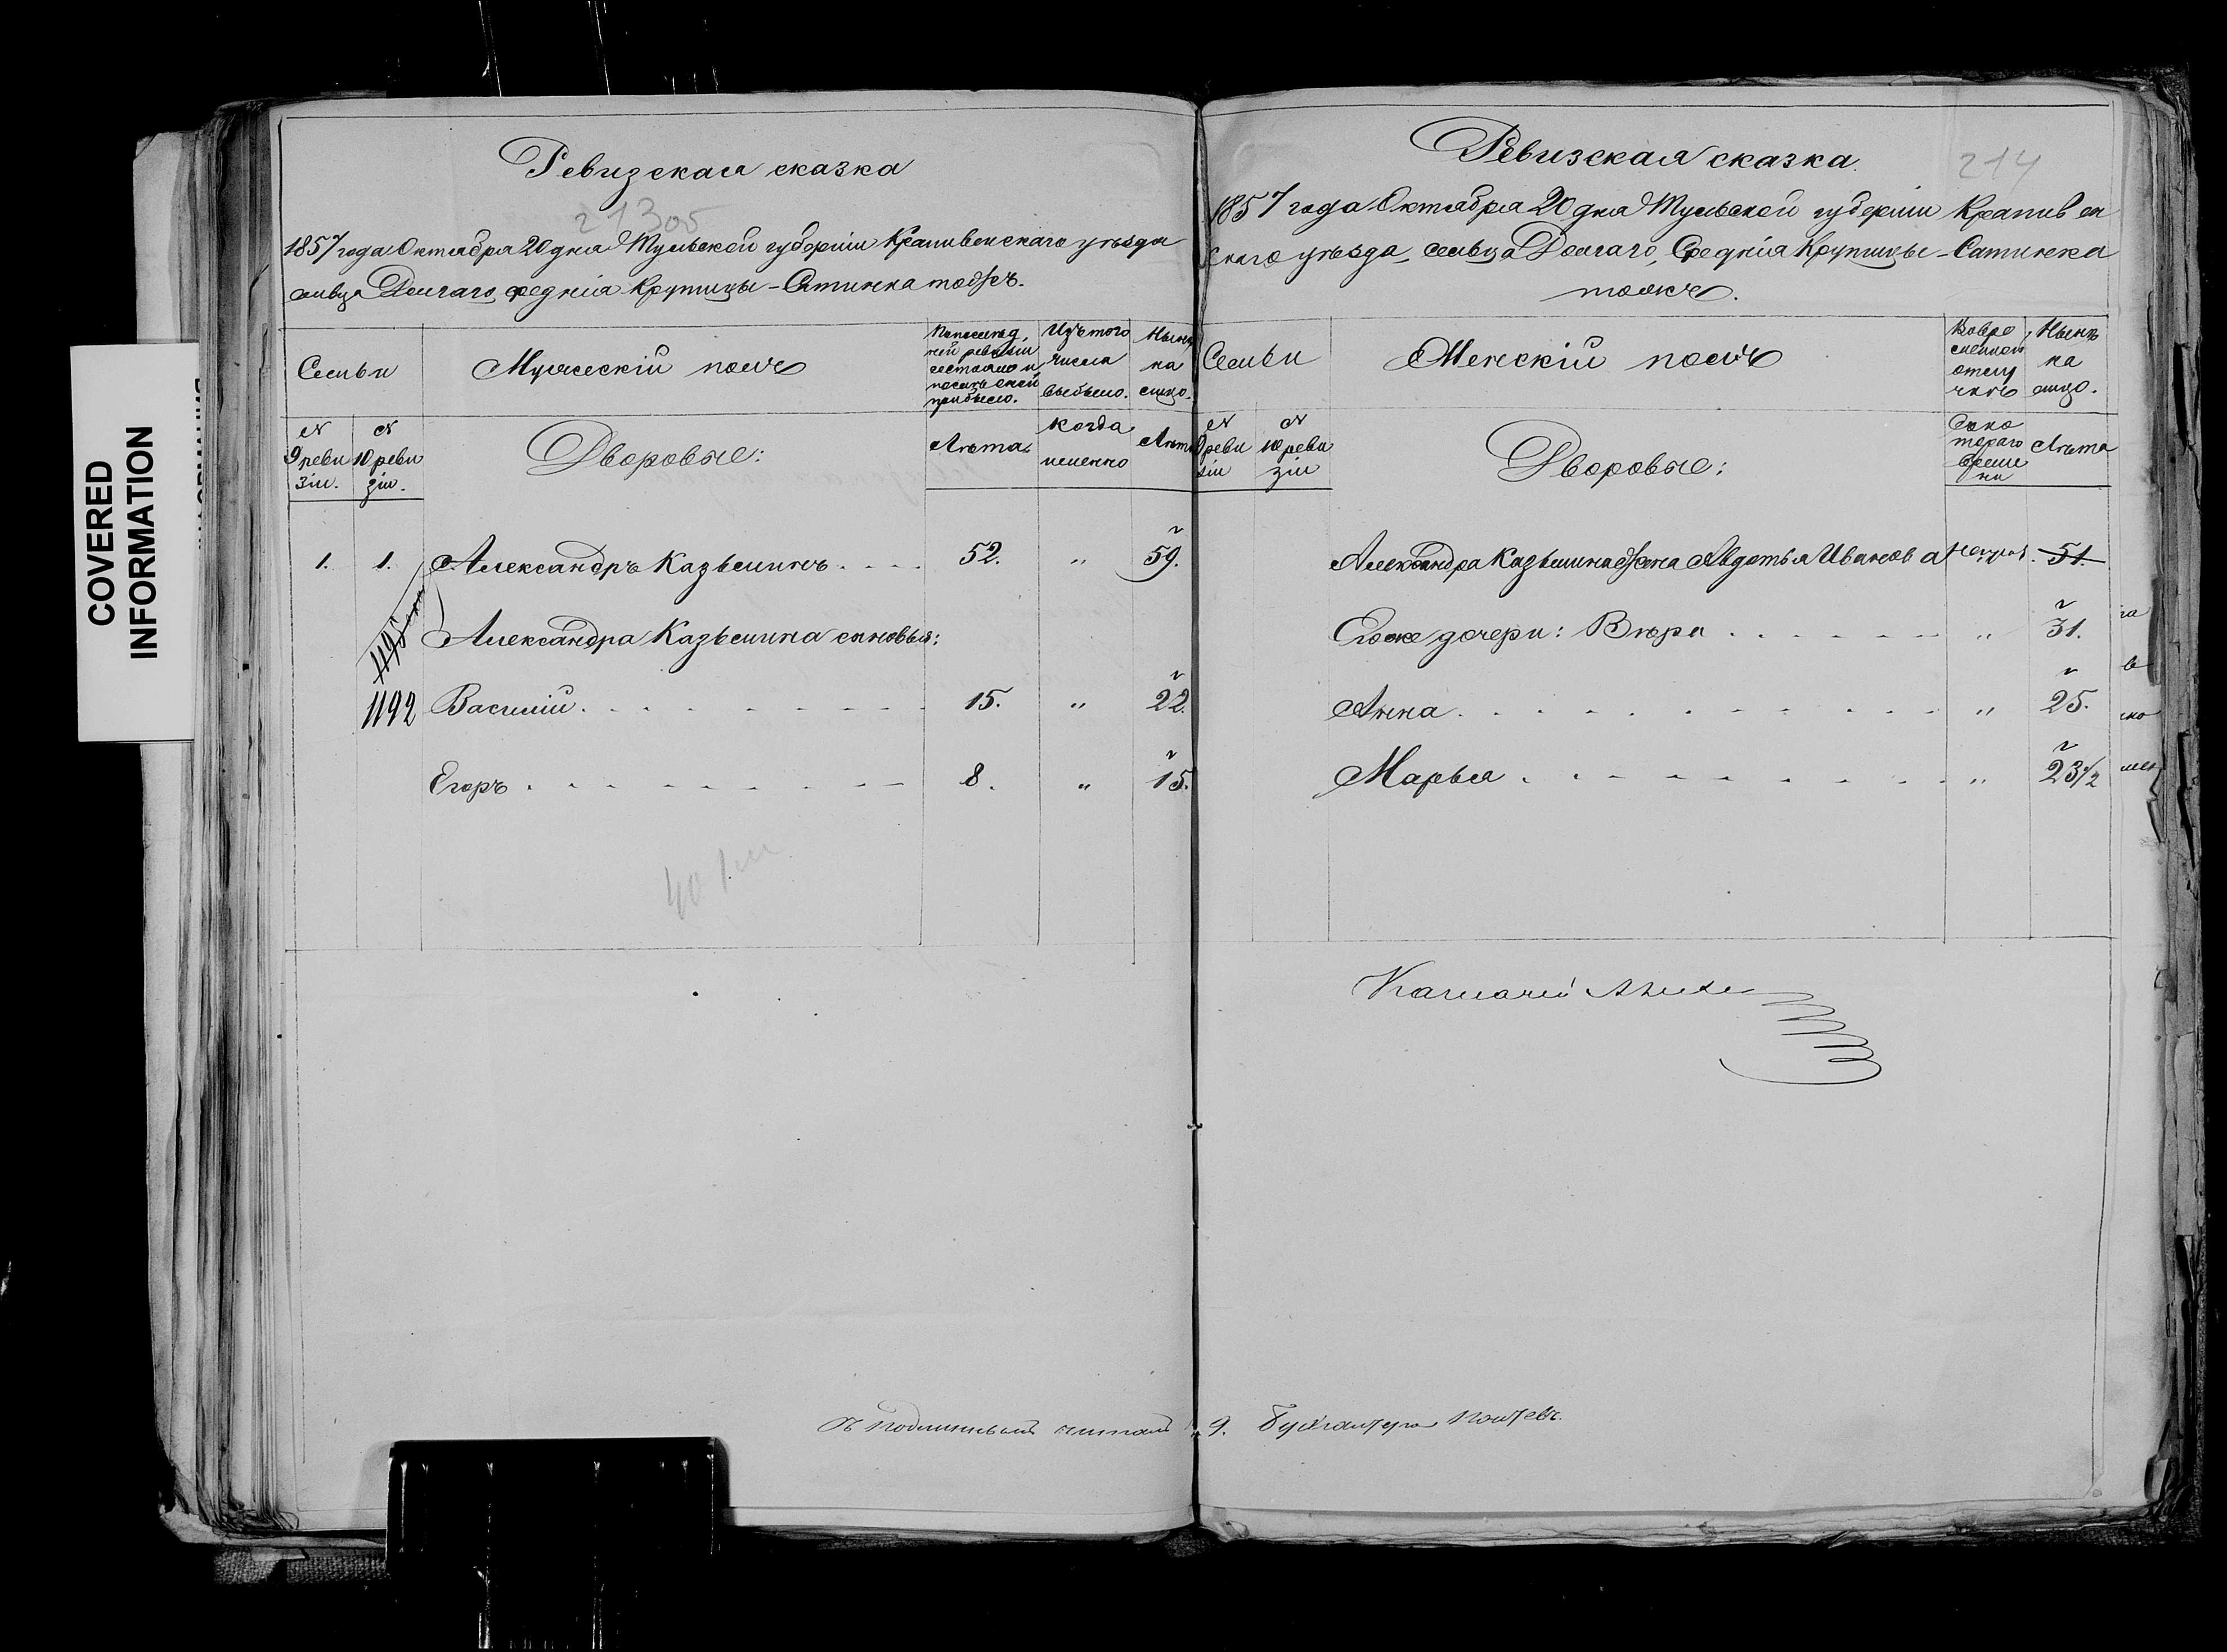 COVERED
INFORMATION
Ревизская сказка
1857 года Октября 20 дня Тульской губерніи Крапивенскаго уѣзда
сельца Долгаго, Средніа Крутицы - Сатинка тожъ.
Семьи
Мужескій полъ
По послѣд,
ней ревизіи
состояло и
послѣ оной
прибыло.
Изъ того
числа
выбыло.
Нынѣ
на
лицо.
№
9 реви
зіи.
№
10 реви
зіи.
Дворовые:
Лѣта
когда
именно
Лѣта
1. 1. Александръ Казьминъ . . . . 52. " 59.
Александра Казьмина сыновья:
1192 Василій . . . . . . . . 15. " 22.
Егоръ . . . . . . . . . 8. " 15.
Съ подлиннымъ читалъ
Ревизская сказка.
214
1857 года Октября 20 дня Тульской губерніи Крапивен
скаго уѣзда, сельца Долгаго, Средніа Крутицы - Сатинка
тожъ.
Семьи
Женскій полъ
Во вре
менной
отлу
чкѣ
Нынѣ
на
лицо.
№
9 реви
зіи
№
10 реви
зіи
Дворовые:
Съ ко
тораго
време
ни
Лѣта
Александра Казьмина жена Авдотья Иванова 51.
Его же дочери: Вѣра . . . . . . . " 31.
Анна . . . . . . . . . . . " 25.
Марья . . . . . . . . . . " 23 1/2
Казначей
Бухгалтера